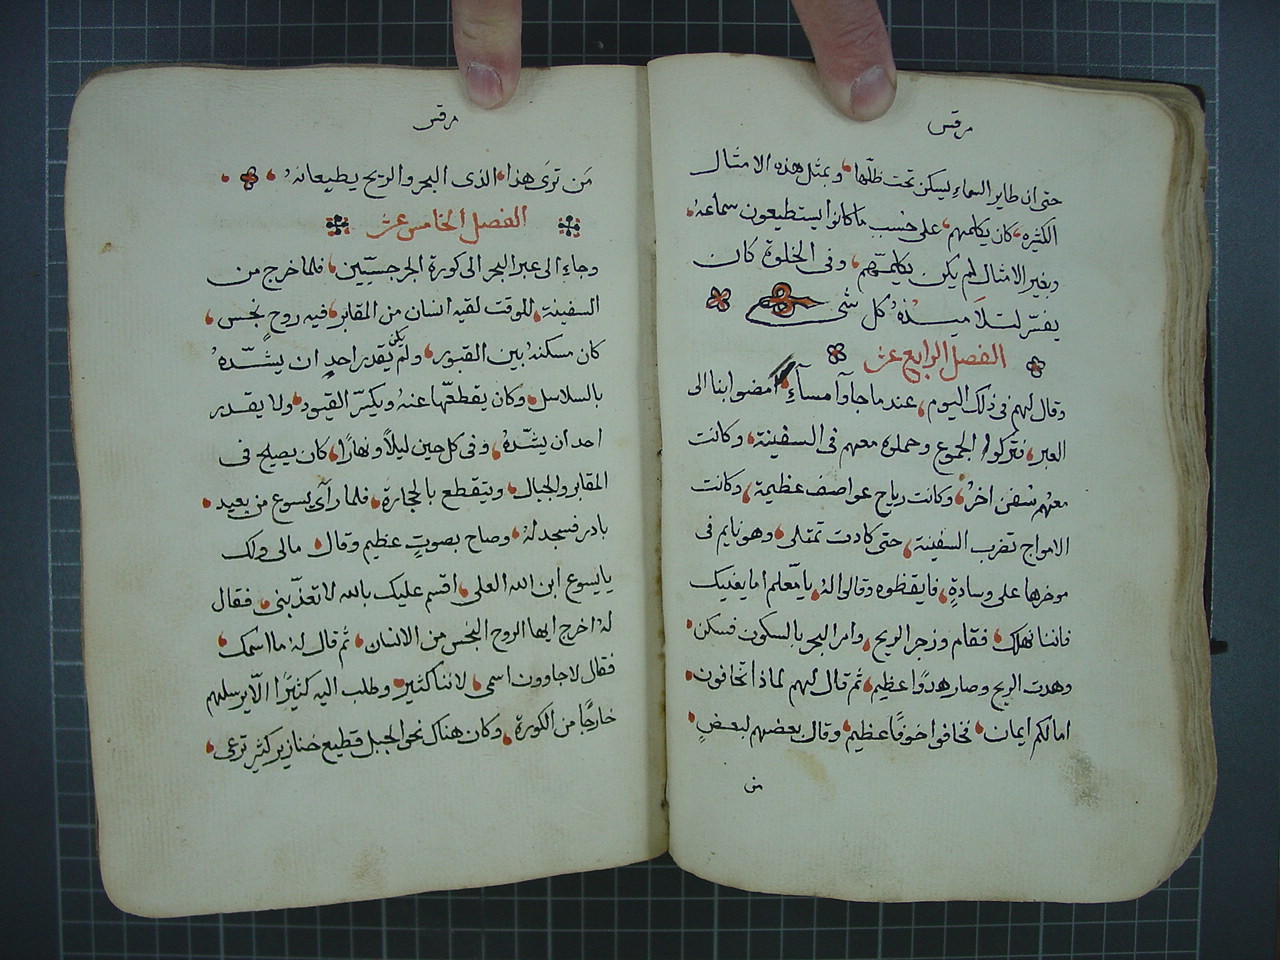 مرقس
حتى ان طاير السماء ليسكن تحت ظلّها، وبمثل هذه الامثال
الكثيره، كان يكلمهم، على حسب ما كانوا يستطيعون سماعهُ،
وبغير الامثال لم يكن يكلمهم، وفى الخلوة كان
يفسّر لتلاميذهُ كل شى
الفصل الرابع عشر
وقال لهم فى ذلك اليوم، عندما جاوآ مسآءً، امضوا بنا الى
العبر، فتركوا الجموع وحملوه معهم فى السفينة، وكانت
معهُم سُفن اخرُ، وكانت رياح عواصف عظيمة، وكانت
الامواج تضرب السفينة، حتى كادت تمتلى، وهو نايم فى
موخرها على وسادةٍ، فايقظوه وقالوا لهُ، يا معّلم اما يغنيك
فاننا نهلك، فقام وزجر الريح، وامر البحر بالسكون فسكن،
وهدت الريح وصار هدوًا عظيم، ثم قال لهم لماذا تخافون،
اما لكم ايمان، فخافوا خوفًا عظيم، وقال بعضهم لبعضٍ،
من
مرقس
مَن ترَى هذا، الذى البحر والريح يطيعانهُ،
الفصل الخامس عشر
وجاءِ الى عبر البحر الى كورة الجرجسيّين، فلما خرج من
السفينة، للوقت لقيه انسان من المقابر، فيه روح نجس،
كان مسكنهُ بين القبور، ولم يكن يقدر احدٍ ان يشّدهُ
بالسلاسل، وكان يقطعّها عنهُ ويكسّر القيود، ولا يقدر
احد ان يشّدهُ، وفى كل حين ليلاً ونهارًا، كان يصيح فى
المقابر والجبال، ويتقطع بالحجارة، فلما رآى يسوع من بعيد،
بادر فسجد لهُ، وصاح بصوتٍ عظيم وقال، مالى ولك
يا يسوع ابن الله العلى، اقسم عليك بالله لا تعذّبنى، فقال
لهُ اخرج ايها الروح النجس من الانسان، ثم قال لهُ ما اسمك،
فقال لاجاوون اسمى، لاننا كثير، وطلب اليه كثيرًا الّا يرسلهم
خارجًا من الكورة، وكان هناك نحو الجبل قطيع خنازير كثيرٍ ترعى،